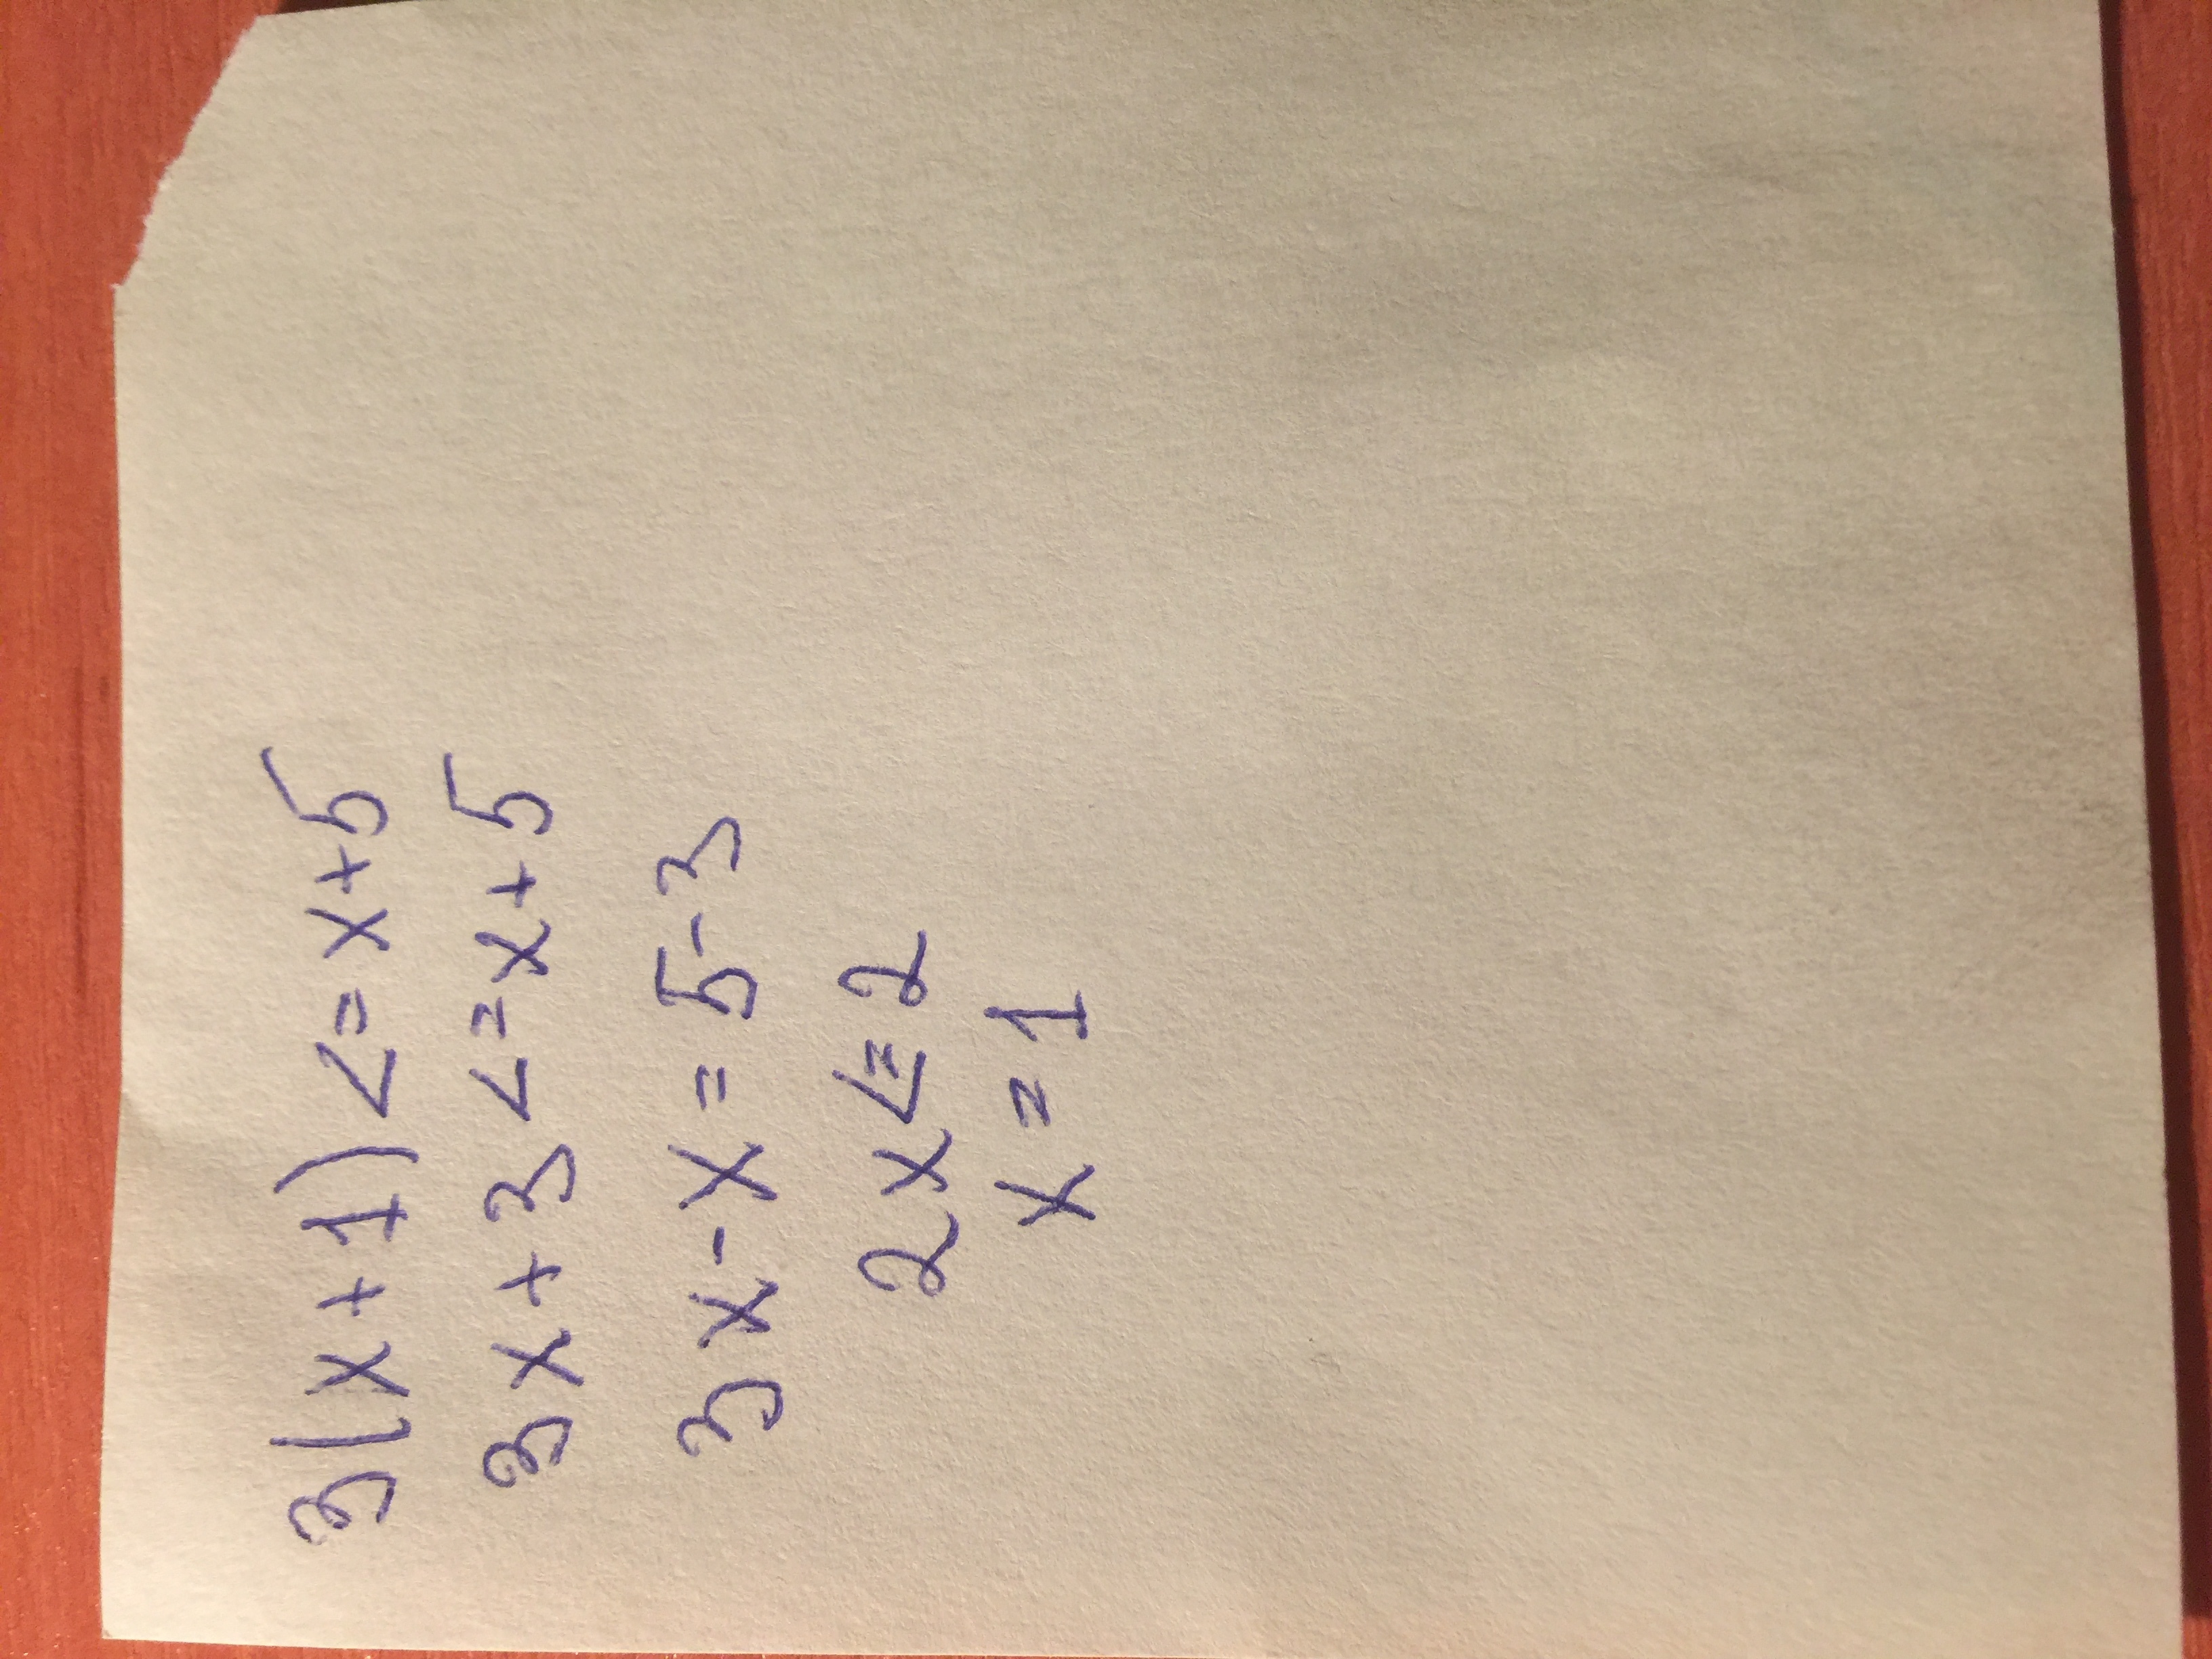 3(x+1)<=x+5
3x+3<=x+5
3x-x=5-3
2x<=2
x=1